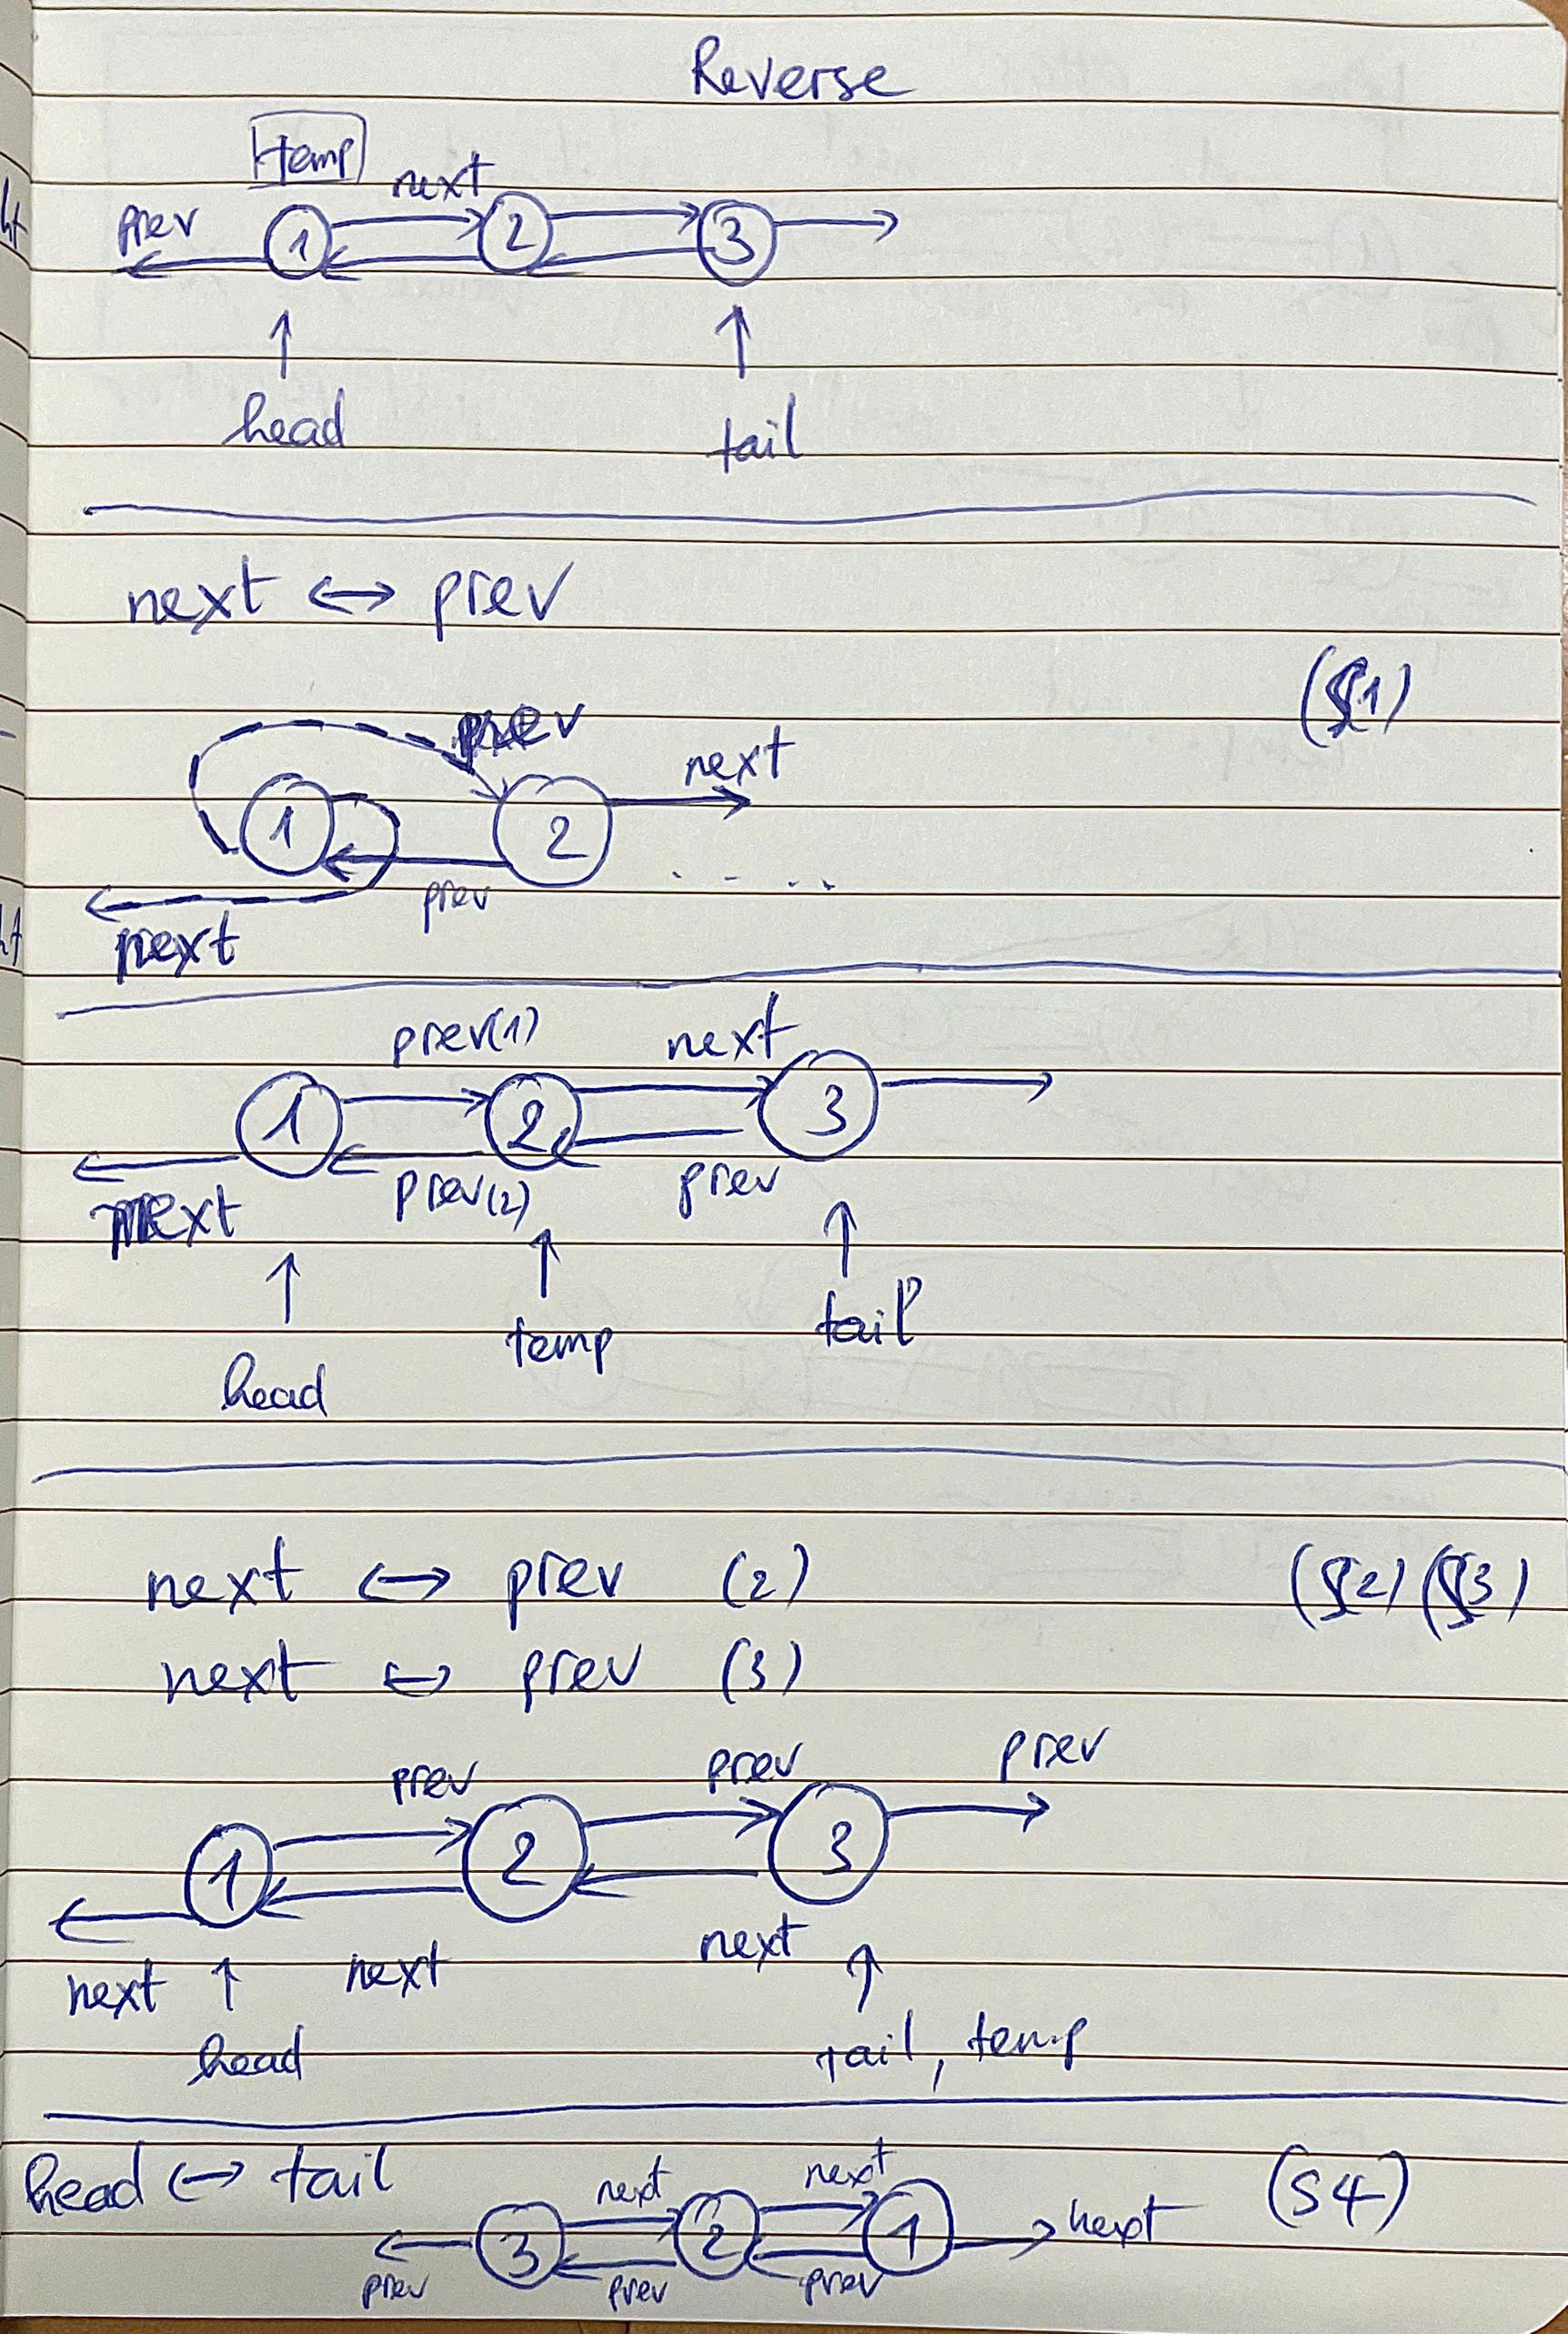 Reverse
temp
next
prev
1 2 3
head tail
next ↔ prev
(S1)
prev
next
1 2
prev
. . . . .
next
prev(1) next
1 2 3
next prev(2) prev
temp tail
head
next ↔ prev (2) (S2) (S3)
next ↔ prev (3)
prev prev prev
1 2 3
next next next
head tail, temp
head ↔ tail (S4)
next next
3 2 1 next
prev prev prev